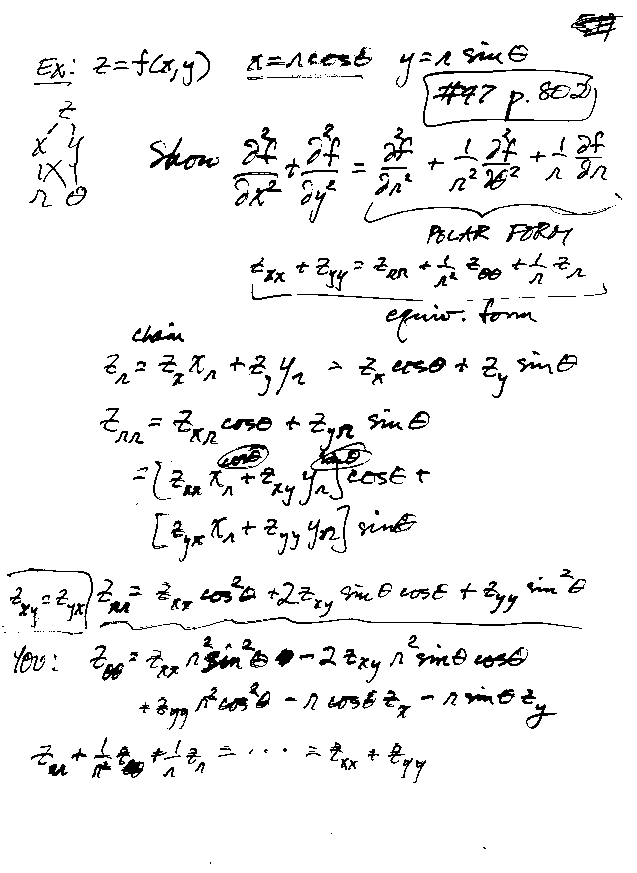 Ex: z=f(x,y) x=r cosθ y=r sinθ
#47 p. 802
z
x y
r θ
Show ∂²f/∂x² + ∂²f/∂y² = ∂²f/∂r² + 1/r² ∂²f/∂θ² + 1/r ∂f/∂r
POLAR FORM
z_xx + z_yy = z_rr + 1/r² z_θθ + 1/r z_r
equiv. form
chain
z_r = z_x x_r + z_y y_r = z_x cosθ + z_y sinθ
z_rr = z_xr cosθ + z_yr sinθ
cosθ sinθ
= [z_xx x_r + z_xy y_r] cosθ +
[z_yx x_r + z_yy y_r] sinθ
z_xy = z_yx z_rr = z_xx cos²θ + 2z_xy sinθ cosθ + z_yy sin²θ
You: z_θθ = z_xx r² sin²θ - 2 z_xy r² sinθ cosθ
+ z_yy r² cos²θ - r cosθ z_x - r sinθ z_y
z_rr + 1/r² z_θθ + 1/r z_r = · · · = z_xx + z_yy